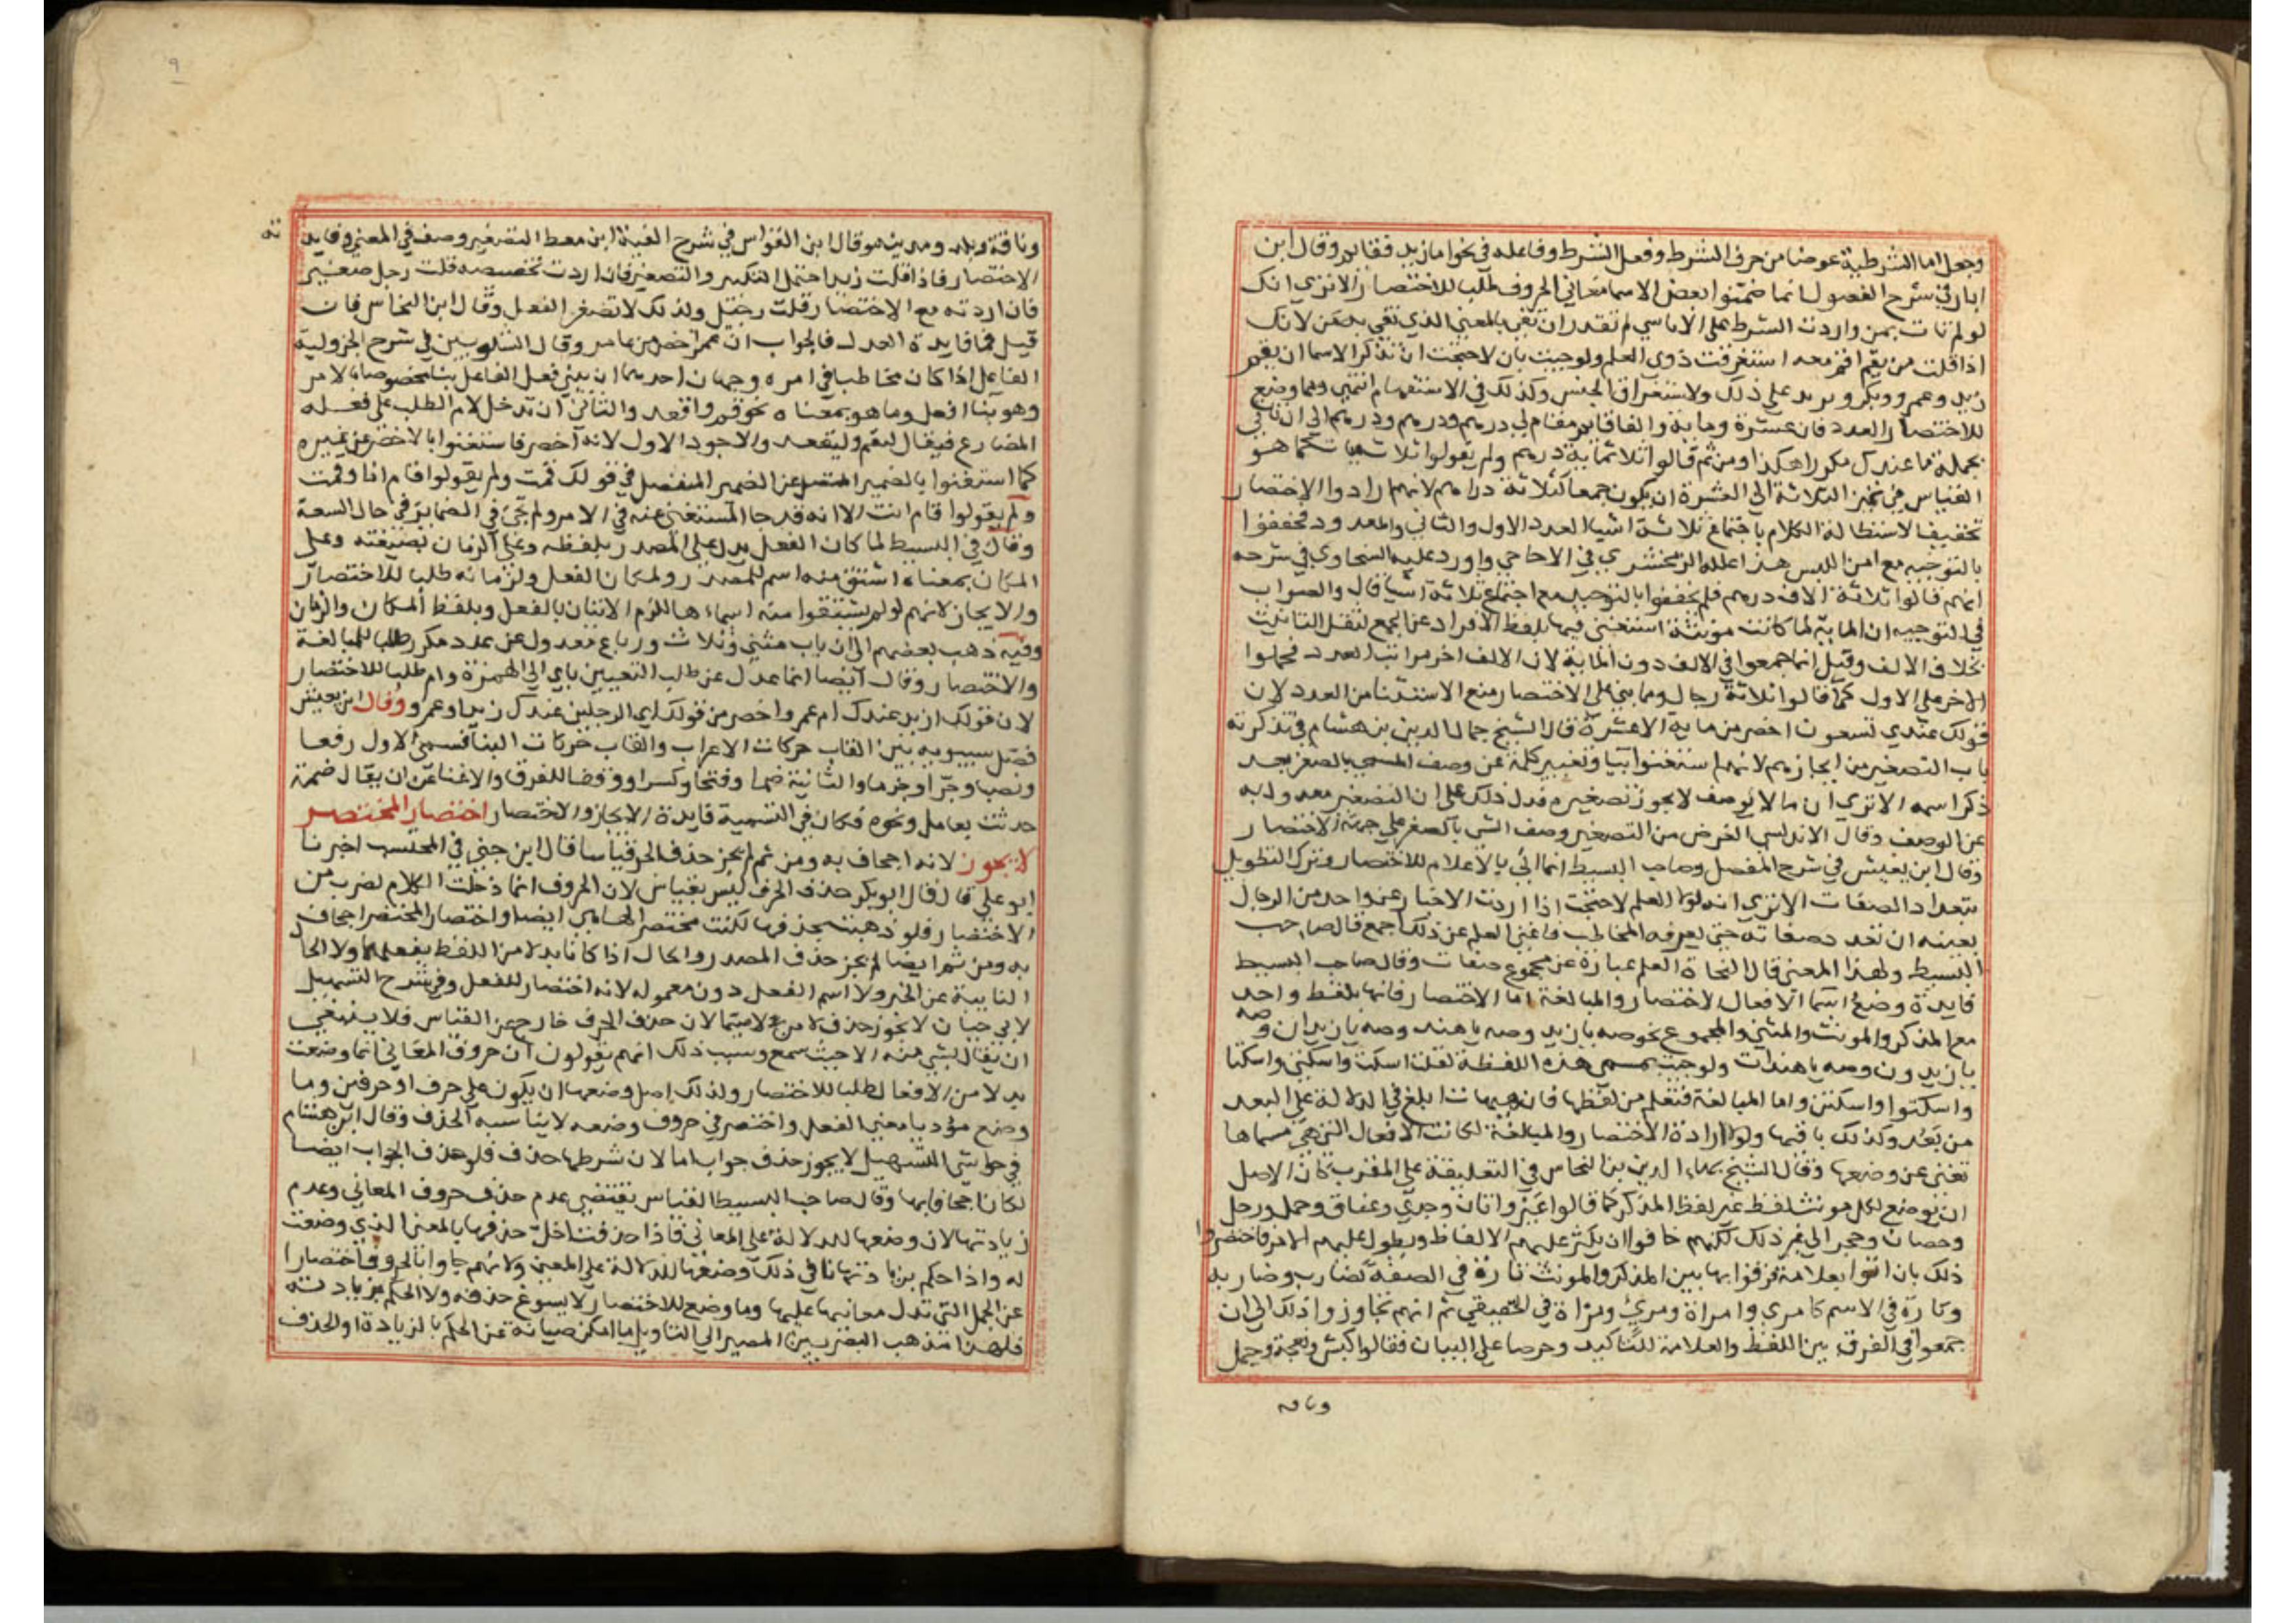 وجعل اما الشرطية عوضا من حرف الشرط وفعل الشرط وفاعله في نحو اما زيد فقايم وقال ابن
اياز في شرح الفصول انما ضمنوا بعض الاسما معاني الحروف طلبا للاختصار الا تري انك
لو لم تات بمن واردت الشرط علي الاناسي لم تقدر ان تفي بالمعني الذي تفي به من لانك
اذا قلت من يقم اقم معه استغرقت ذوي العلم ولو جيت بان لاحتجت ان تذكر الاسما ان يقم
زيد وعمرو وبكر وتزيد علي ذلك ولا تستغرق الجنس وكذلك في الاستفهام انتهي ومما وضع
للاختصار العدد فان عشرة ومايه والفا قايم مقام لي درهم ودرهم ودرهم الي ان تاتي
بجملة ما عندك مكررا هكذا ومن ثم قالوا ثلاثماية درهم ولم يقولوا ثلاث مئات كما هو
القياس في تمييز الثلاثة الي العشرة ان يكون جمعا كثلاثة دراهم لانهم ارادوا الاختصار
تخفيفا لاستطالة الكلام باجتماع ثلاثة اشيا العدد الاول والثاني والمعدود فخففوا
بالتوحيد مع امن اللبس هذا علله الزمخشري في الاحاجي واورد عليه السخاوي في شرحه
انهم قالوا ثلاثة الاف درهم فلم يخففوا بالتوحيد مع اجتماع ثلاثة اشيا قال والصواب
في التوجيه ان الماية لما كانت مونثة استغني فيها بلفظ الافراد عن الجمع لثقل التانيث
بخلاف الالف وقيل انما جمعوا في الالف دون الماية لان الالف اخر مراتب العدد فحملوا
الاخر علي الاول كما قالوا ثلاثة رجال ومما بني علي الاختصار منع الاستثنا من العدد لان
قولك عندي تسعون اخصر من ماية الا عشرة قال الشيخ جمال الدين بن هشام في تذكرته
باب التصغير من ايجازهم لانهم استغنوا بيا وتغيير كلمة عن وصف المسمي بالصغر بعد
ذكر اسمه الا تري ان ما لا يوصف لا يجوز تصغيره فدل ذلك علي ان التصغير معدول به
عن الوصف وقال الاندلسي الغرض من التصغير وصف الشي بالصغر علي جهة الاختصار
وقال ابن يعيش في شرح المفصل وصاحب البسيط انما اتي بالاعلام للاختصار وترك التطويل
بتعداد الصفات الا تري انه لولا العلم لاحتجت اذا اردت الاخبار عن واحد من الرجال
بعينه ان تعدد صفاته حتي يعرفه المخاطب فاغني العلم عن ذلك اجمع قال صاحب
البسيط ولهذا المعني قال النحاة العلم عبارة عن مجموع صفات وقال صاحب البسيط
فايدة وضع اسما الافعال الاختصار والمبالغة اما الاختصار فانها بلفظ واحد
مع المذكر والمونث والمثني والمجموع نحو صه يا زيد وصه يا هند وصه يا زيدان وصه
يا زيدون وصه يا هندات ولو جيت بمسمي هذه اللفظة لقلت اسكت واسكتي واسكتا
واسكتوا واسكتن واما المبالغة فتعلم من لفظها فان هيهات ابلغ في الدلالة علي البعد
من بعد وكذلك باقيها ولولا ارادة الاختصار والمبالغة لكانت الافعال التي هي مسماها
تغني عن وضعها وقال الشيخ بهاء الدين بن النحاس في التعليقة علي المقرب كان الاصل
ان يوضع لكل مونث لفظ غير لفظ المذكر كما قالوا عير واتان وجدي وعناق وحمل ورخل
وحصان وحجر الي غير ذلك لكنهم خافوا ان يكثر عليهم الالفاظ ويطول عليهم الامر فاختصروا
ذلك بان اتوا بعلامة فرقوا بها بين المذكر والمونث تارة في الصفة كضارب وضاربة
وتارة في الاسم كامري وامراة ومرئ ومراة في الحقيقي ثم انهم تجاوزوا ذلك الي ان
جمعوا في الفرق بين اللفظ والعلامة للتاكيد وحرصا علي البيان فقالوا كبش ونعجة وجمل
وناقه
٩
وناقة وبلد ومدينة وقال ابن القواس في شرح الفية ابن معط التصغير وصف في المعني وفايدته
الاختصار فاذا قلت زيد احتمل التكبير والتصغير فان اردت تخصيصه قلت رجل صغير
فان اردته مع الاختصار قلت رجيل ولذلك لا تصغر الفعل وقال ابن النحاس فان
قيل فما فايدة العدل فالجواب ان عمر اخصر من عامر وقال الشلوبين في شرح الجزولية
الفاعل اذا كان مخاطبا في امره وجهان احدهما ان يبني فعل الفاعل بنا مخصوصا بالامر
وهو بنا افعل وما هو بمعناه نحو قم واقعد والثاني ان تدخل لام الطلب علي فعله
المضارع فيقال لتقم ولتقعد والاجود الاول لانه اخصر فاستغنوا بالاخصر عن غيره
كما استغنوا بالضمير المتصل عن الضمير المنفصل في قولك قمت ولم يقولوا قام انا وقمت
ولم يقولوا قام انت الا انه قد جا المستغني عنه في الامر ولم يجئ في الضماير في حال السعة
وقال في البسيط لما كان الفعل يدل علي المصدر بلفظه وعلي الزمان بصيغته وعلي
المكان بمعناه اشتق منه اسم للمصدر ولمكان الفعل ولزمانه طلبا للاختصار
والايجاز لانهم لو لم يشتقوا منه اسماءها للزم الاتيان بالفعل وبلفظ المكان والزمان
وفيه ذهب بعضهم الي ان باب مثني وثلاث ورباع معدول عن عدد مكرر طلبا للمبالغة
والاختصار وقال ايضا انما عدل عن طلب التعيين باي الي الهمزة وام طلبا للاختصار
لان قولك ازيد عندك ام عمرو اخصر من قولك اي الرجلين عندك زيد او عمرو وقال ابن يعيش
فصل سيبويه بين القاب حركات الاعراب والقاب حركات البنا فسمي الاول رفعا
ونصبا وجرا وجزما والثانية ضما وفتحا وكسرا ووقفا للفرق والاغنا عن ان يقال ضمة
حدثت بعامل ونحوه فكان في التسمية فايدة الايجاز والاختصار اختصار المختصر
لا يجوز لانه اجحاف به ومن ثم لم يجز حذف الحرف قياسا قال ابن جني في المحتسب اخبرنا
ابو علي قال قال ابو بكر حذف الحرف ليس بقياس لان الحروف انما دخلت الكلام لضرب من
الاختصار فلو ذهبت تحذفها لكنت مختصرا لها هي ايضا واختصار المختصر اجحاف
به ومن ثم ايضا لم يجز حذف المصدر والحال اذا كانا بدلا من اللفظ بفعلهما ولا الحال
النايبة عن الخبر ولا اسم الفعل دون معموله لانه اختصار للفعل وفي شرح التسهيل
لابي حيان لا يجوز حذف لا من لا سيما لان حذف الحرف خارج عن القياس فلا ينبغي
ان يقال بشي منه الا حيث سمع وسبب ذلك انهم يقولون ان حروف المعاني انما وضعت
بدلا من الافعال طلبا للاختصار ولذلك اصل وضعها ان يكون علي حرف او حرفين وما
وضع مؤديا معني الفعل واختصر في حروف وضعه لا يناسبه الحذف وقال ابن هشام
في حواشي التسهيل لا يجوز حذف جواب اما لان شرطها حذف فلو حذف الجواب ايضا
لكان اجحافا بها وقال صاحب البسيط القياس يقتضي عدم حذف حروف المعاني وعدم
زيادتها لان وضعها للدلالة علي المعاني فاذا حذفت اخل حذفها بالمعني الذي وضعت
له واذا حكم بزيادتها نافي ذلك وضعها للدلالة علي المعني ولانهم جاوا بالحروف اختصارا
عن الجمل التي تدل معانيها عليها وما وضع للاختصار لا يسوغ حذفه ولا الحكم بزيادته
فلهذا مذهب البصريين المصير الي التاويل ما امكن صيانة عن الحكم بالزيادة او الحذف